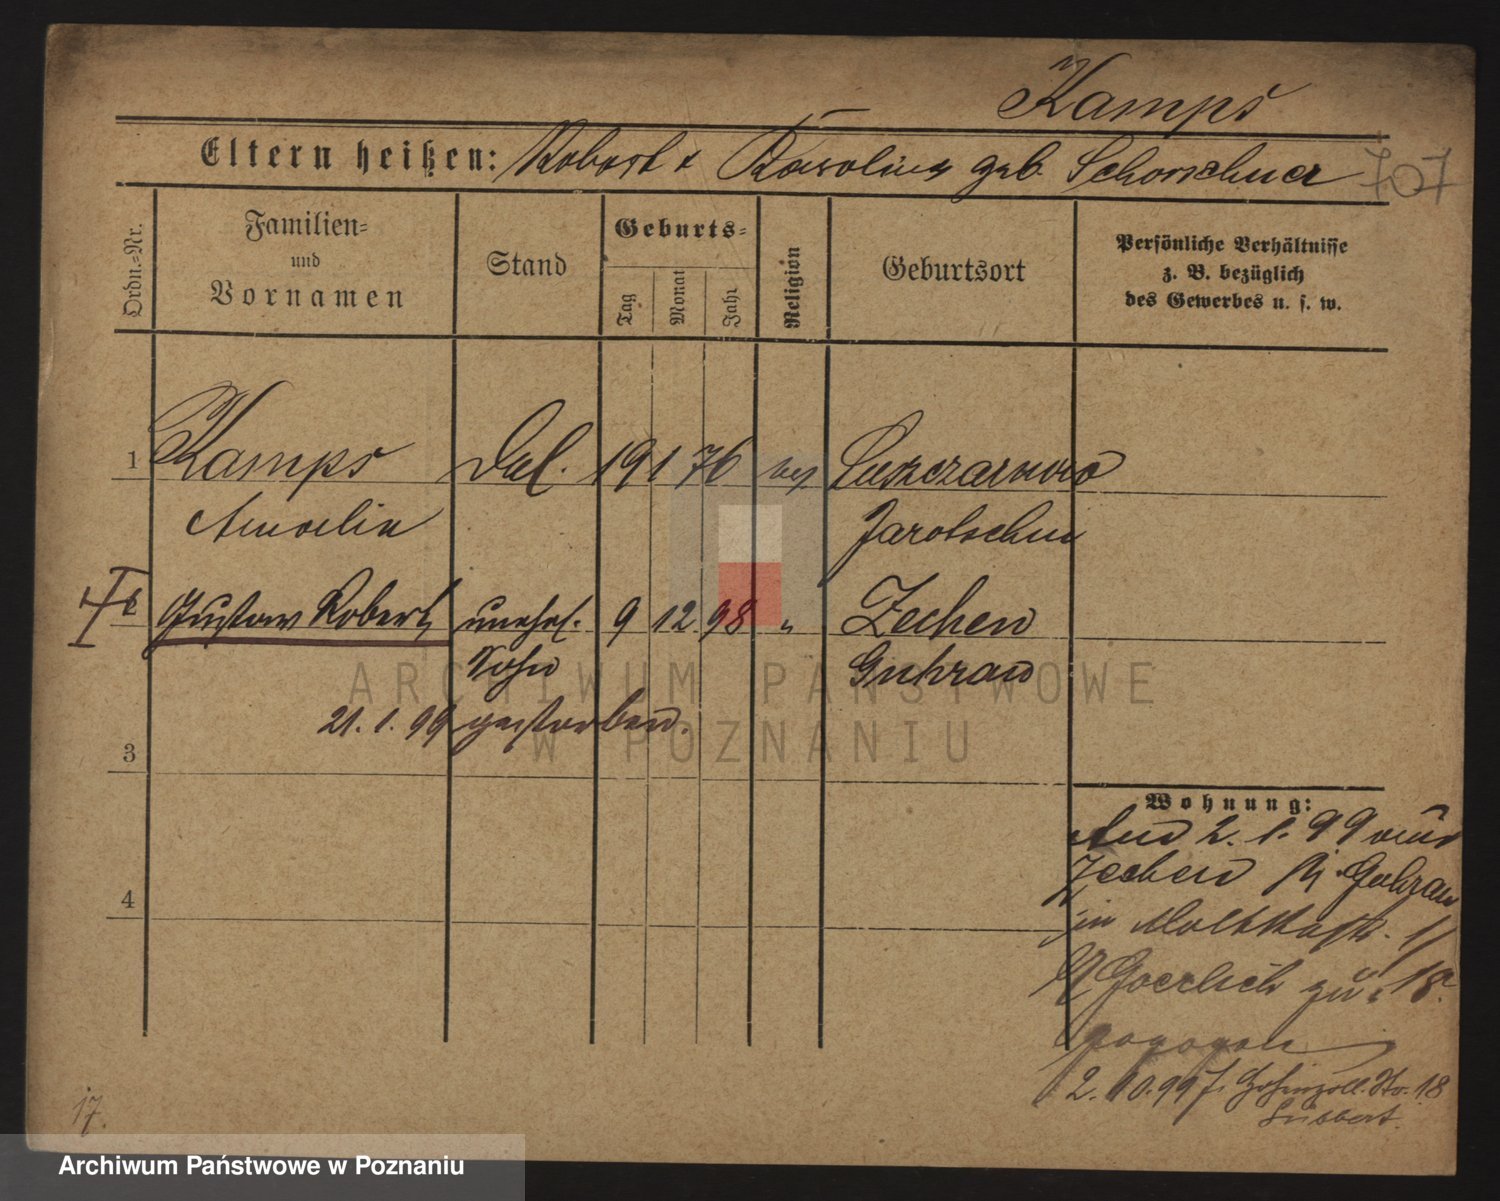 Kamps
Eltern heißen: Robert & Karoline geb. Schorschner
707
Ordn.-Nr.
Familien-
und
Vornamen
Stand
Geburts-
Tag
Monat
Jahr
Religion
Geburtsort
Persönliche Verhältnisse
z. B. bezüglich
des Gewerbes u. s. w.
1 Kamps 19 1 76 ev
Amalie Jarotschin
Gustav Robert unehel. 9 12 98 " Zechen
Sohn Guhrau
21.1.99 gestorben.
3
Wohnung:
Am 2.1.99 aus
Zechen Kr. Guhrau
4
in Moltkestr. 11
Goerlich zu
gezogen
2.10.99 f. Hohenzoll. Str. 18
17.
ARCHIWUM PAŃSTWOWE
W POZNANIU
Archiwum Państwowe w Poznaniu